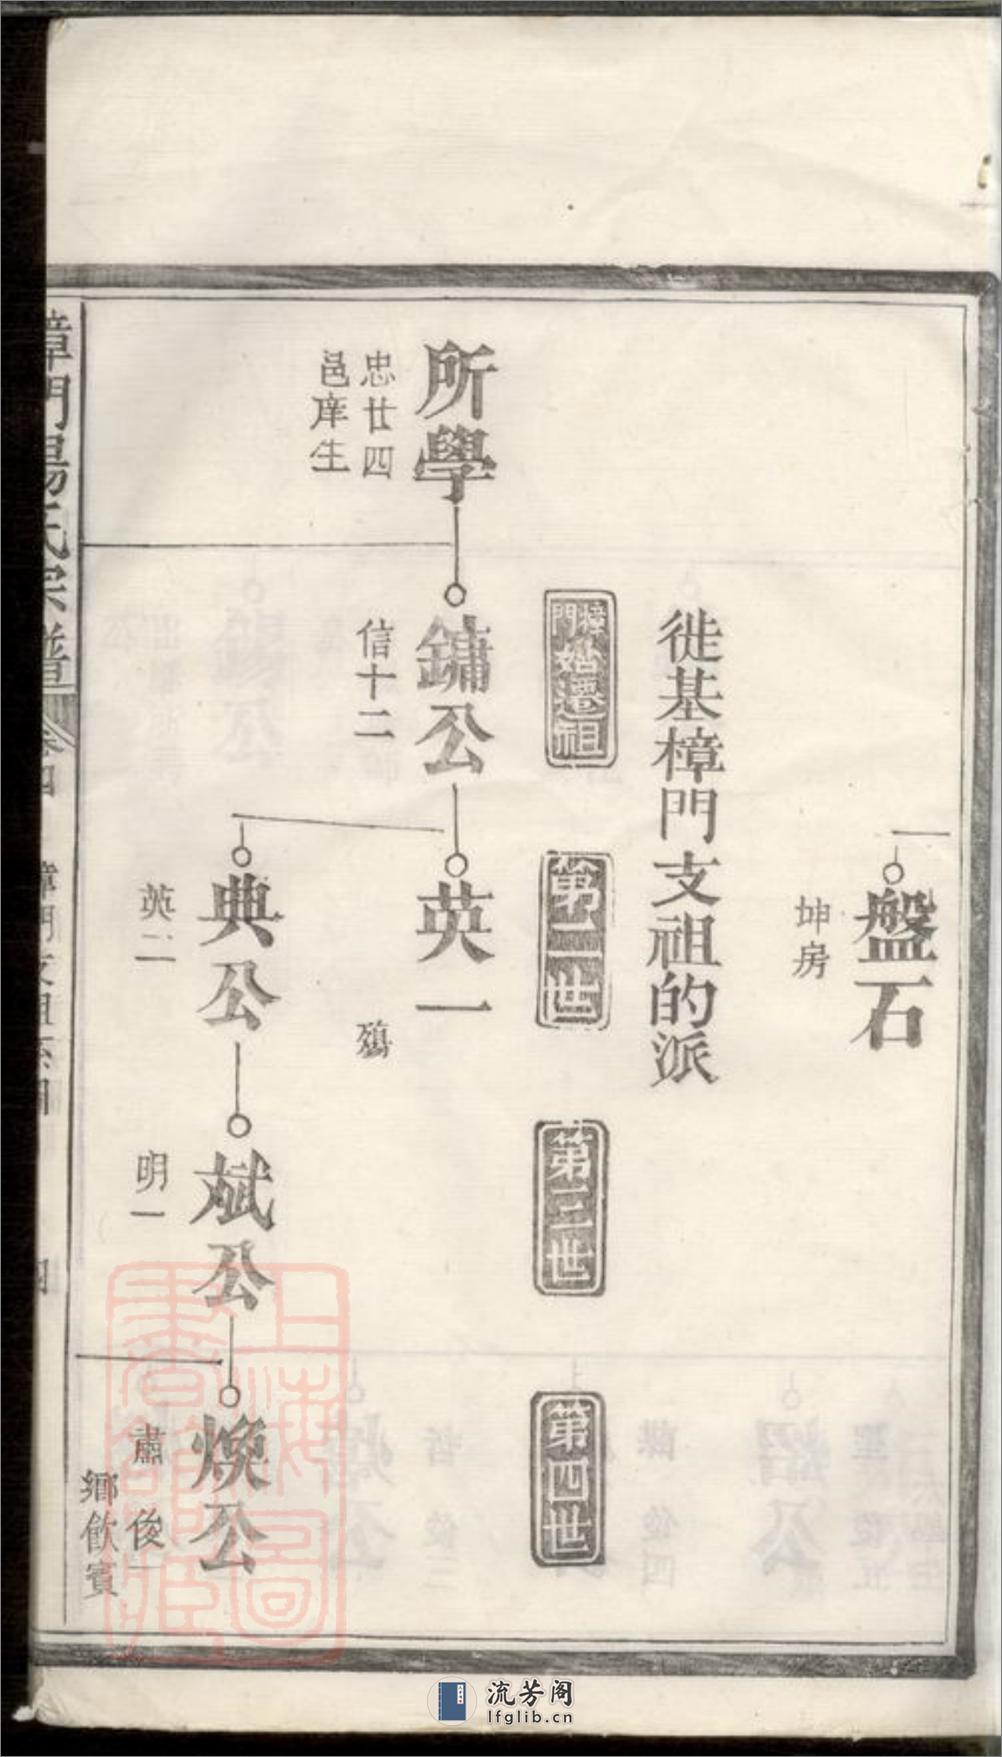 盤石
坤房
徙基樟門支祖的派
樟門始遷祖
第二世
第三世
第四世
所學
忠廿四
邑庠生
鏞公
信十二
英一
殤
典公
英二
斌公
明一
煥公
肅 俊一
鄉飲賓
樟門楊氏宗譜
卷四 樟門支祖系圖 四
上海圖書館藏
流芳阁
lfglib.cn